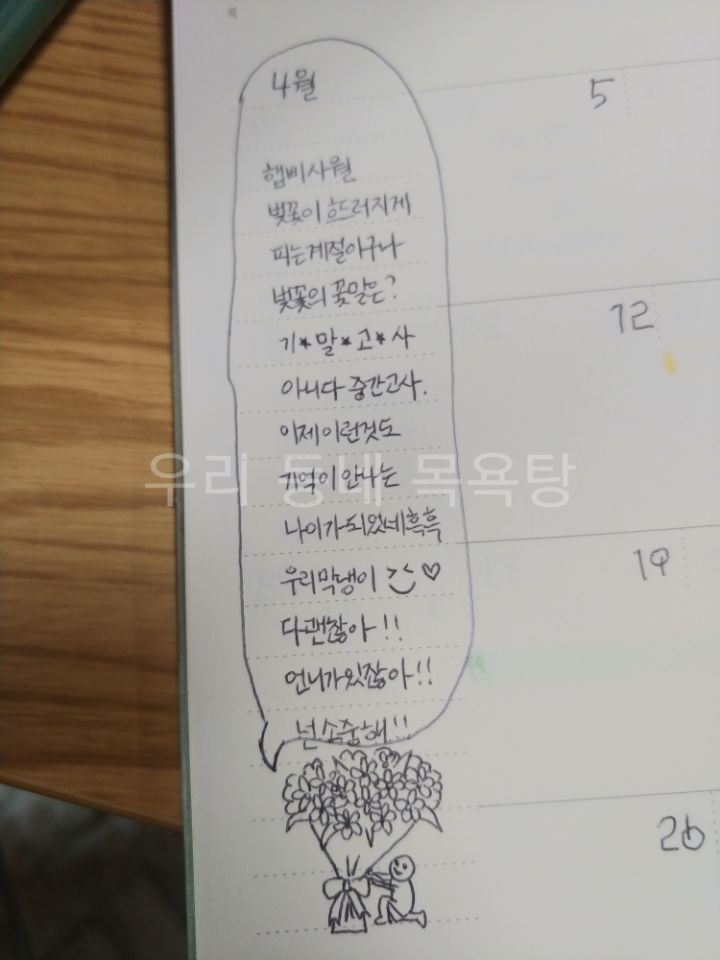 4월
5
햅삐사월
벚꽃이 흐드러지게
피는계절이구나
벚꽃의 꽃말은?
12
기*말*고*사
아니다 중간고사.
이제 이런것도
우리 동네 목욕탕
기억이 안나는
나이가되었네흑흑
19
우리막냉이 ><♡
다괜찮아!!
언니가있잖아!!
넌소중해!!
26